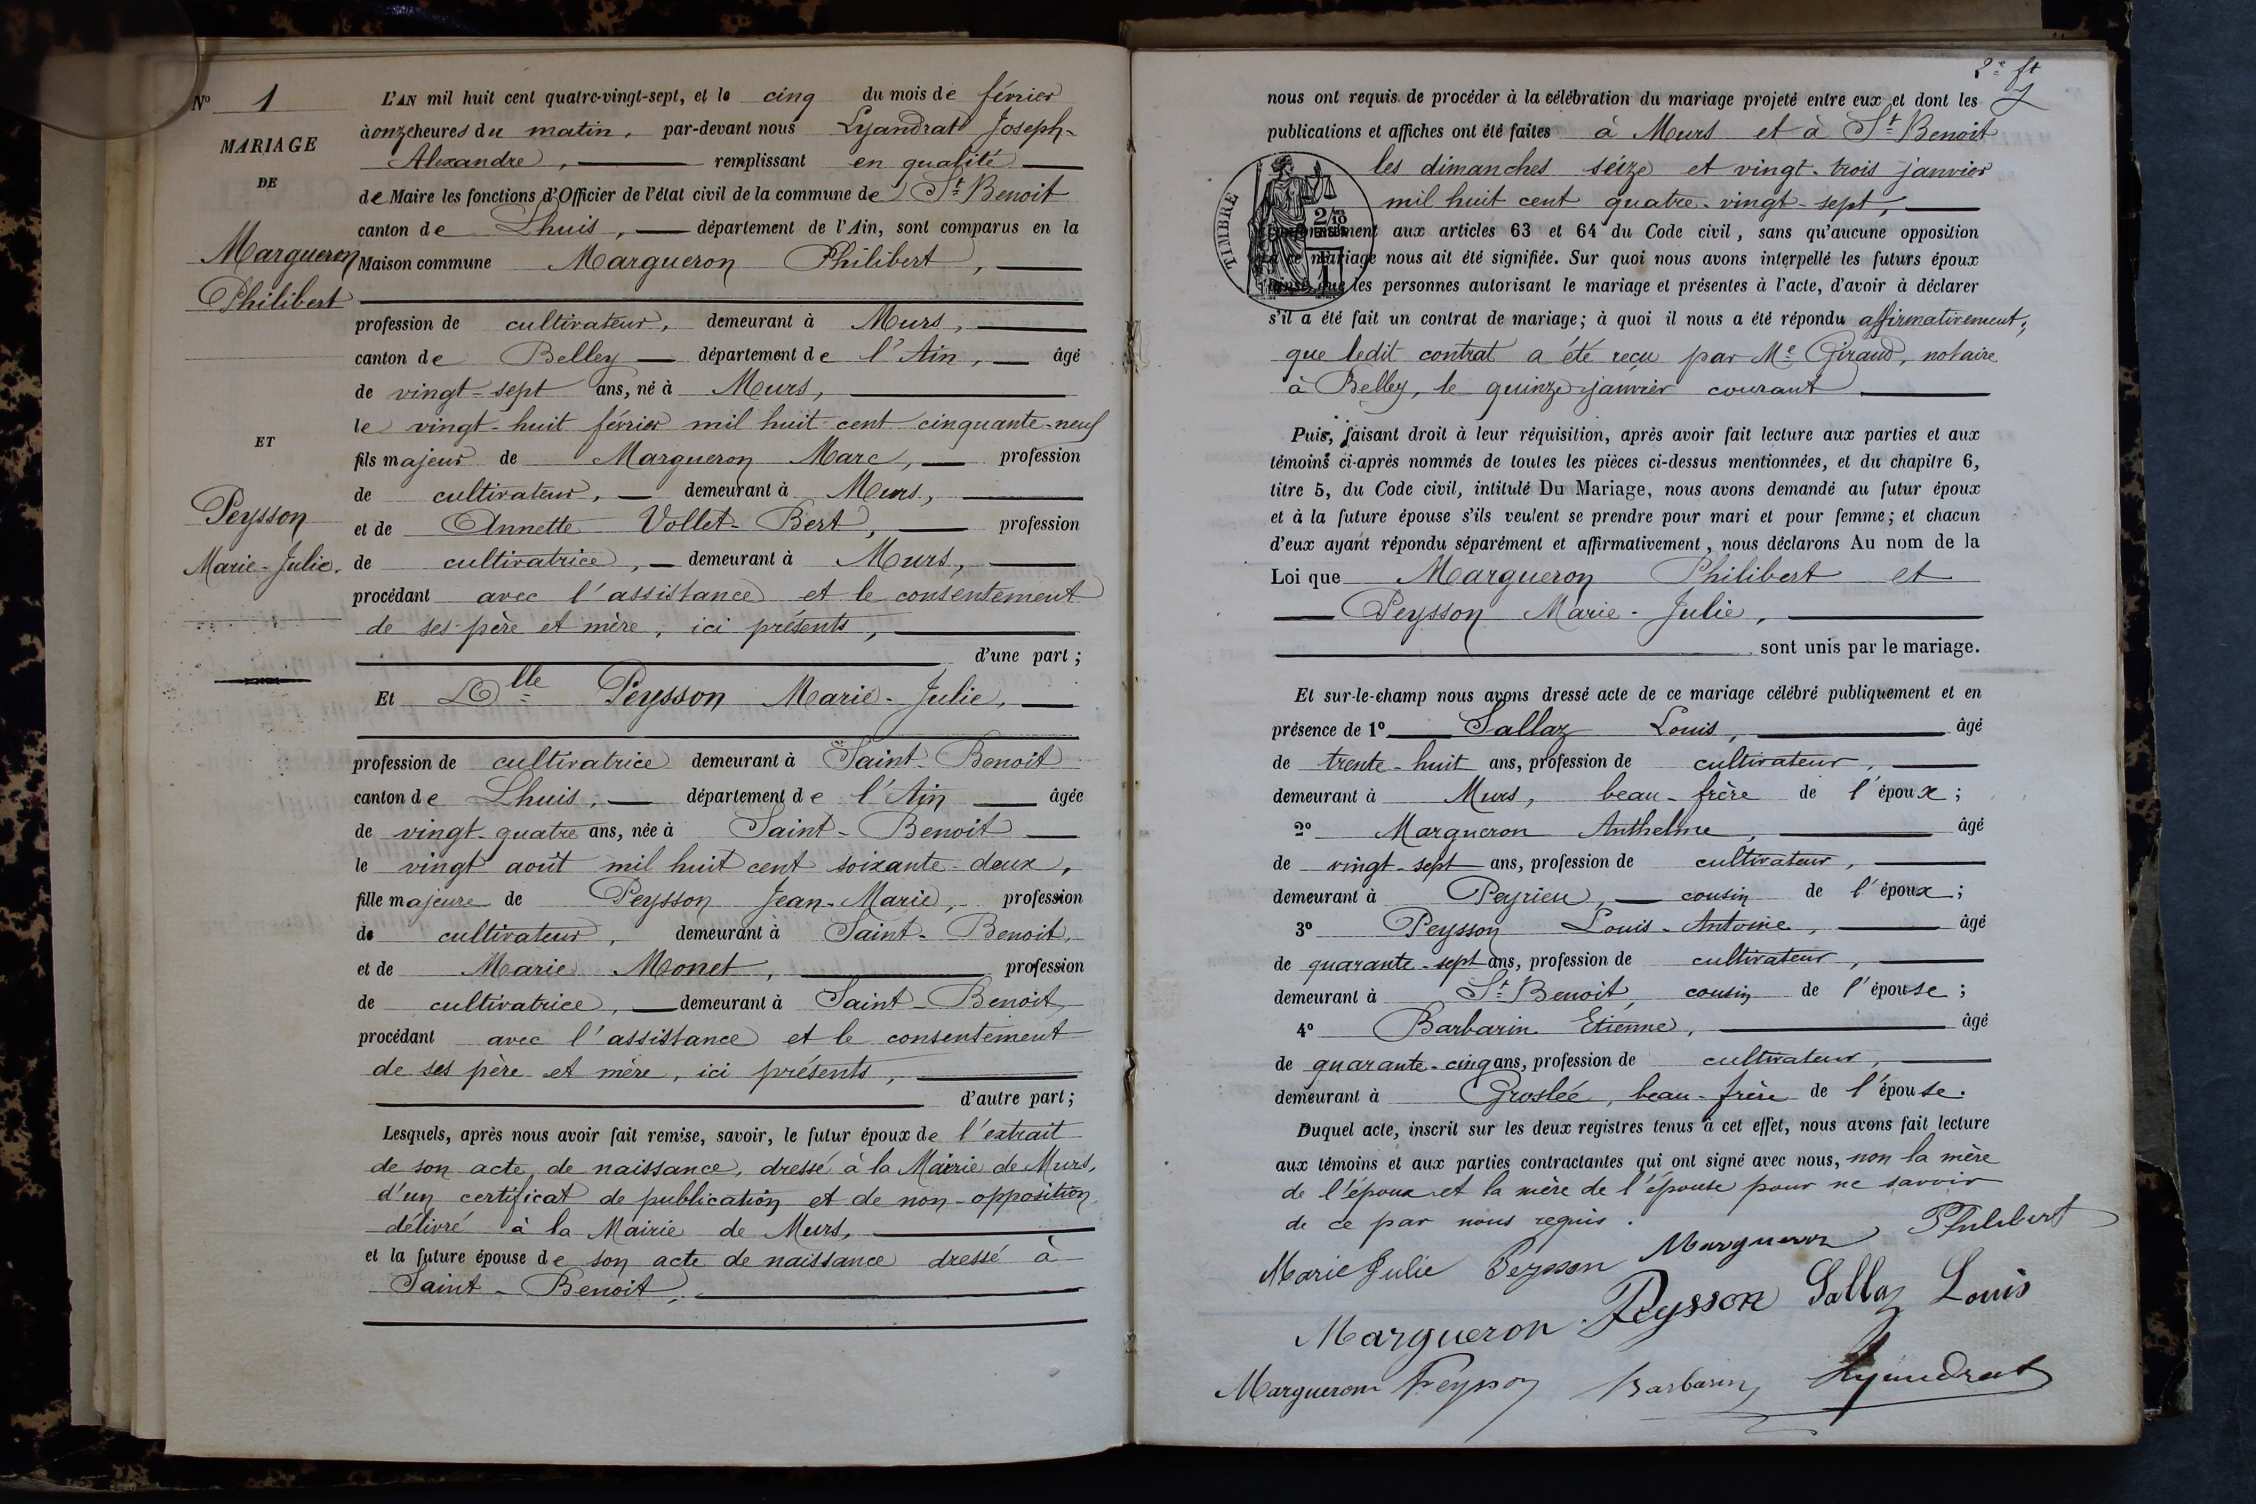 N° 1
MARIAGE
DE
Margueron
Philibert
ET
Peysson
Marie-Julie.
L'AN mil huit cent quatre-vingt-sept, et le cinq du mois de février
à onze heures du matin, par-devant nous Lyandrat Joseph-
Alexandre, remplissant en qualité
de Maire les fonctions d'Officier de l'état civil de la commune de St Benoit
canton de Lhuis, département de l'Ain, sont comparus en la
Maison commune Margueron Philibert,
profession de cultivateur, demeurant à Murs,
canton de Belley département de l'Ain, âgé
de vingt-sept ans, né à Murs,
le vingt-huit février mil huit cent cinquante-neuf
fils majeur de Margueron Marc, profession
de cultivateur, demeurant à Murs,
et de Annette Vollet-Bert, profession
de cultivatrice, demeurant à Murs,
procédant avec l'assistance et le consentement
de ses père et mère, ici présents,
d'une part;
Et Dlle Peysson Marie-Julie,
profession de cultivatrice demeurant à Saint-Benoit
canton de Lhuis, département de l'Ain âgée
de vingt-quatre ans, née à Saint-Benoit
le vingt août mil huit cent soixante-deux,
fille majeure de Peysson Jean-Marie, profession
de cultivateur, demeurant à Saint-Benoit,
et de Marie Monet, profession
de cultivatrice, demeurant à Saint-Benoit,
procédant avec l'assistance et le consentement
de ses père et mère, ici présents,
d'autre part;
Lesquels, après nous avoir fait remise, savoir, le futur époux de l'extrait
de son acte de naissance, dressé à la Mairie de Murs,
d'un certificat de publication et de non-opposition
délivré à la Mairie de Murs,
et la future épouse de son acte de naissance dressé à
Saint-Benoit,
2e ft
nous ont requis de procéder à la célébration du mariage projeté entre eux et dont les
publications et affiches ont été faites à Murs et à St Benoit
les dimanches seize et vingt-trois janvier
mil huit cent quatre-vingt-sept,
TIMBRE
conformément aux articles 63 et 64 du Code civil, sans qu'aucune opposition
à ce mariage nous ait été signifiée. Sur quoi nous avons interpellé les futurs époux
ainsi que les personnes autorisant le mariage et présentes à l'acte, d'avoir à déclarer
s'il a été fait un contrat de mariage; à quoi il nous a été répondu affirmativement;
que ledit contrat a été reçu par Me Giraud, notaire
à Belley, le quinze janvier courant
Puis, faisant droit à leur réquisition, après avoir fait lecture aux parties et aux
témoins ci-après nommés de toutes les pièces ci-dessus mentionnées, et du chapitre 6,
titre 5, du Code civil, intitulé Du Mariage, nous avons demandé au futur époux
et à la future épouse s'ils veulent se prendre pour mari et pour femme; et chacun
d'eux ayant répondu séparément et affirmativement, nous déclarons Au nom de la
Loi que Margueron Philibert et
Peysson Marie-Julie,
sont unis par le mariage.
Et sur-le-champ nous avons dressé acte de ce mariage célébré publiquement et en
présence de 1° Sallaz Louis, âgé
de trente-huit ans, profession de cultivateur,
demeurant à Murs, beau-frère de l'époux;
2° Margueron Anthelme, âgé
de vingt-sept ans, profession de cultivateur,
demeurant à Peyrieu, cousin de l'époux;
3° Peysson Louis-Antoine, âgé
de quarante-sept ans, profession de cultivateur,
demeurant à St Benoit, cousin de l'épouse;
4° Barbarin Etienne, âgé
de quarante-cinq ans, profession de cultivateur,
demeurant à Groslée, beau-frère de l'épouse.
Duquel acte, inscrit sur les deux registres tenus à cet effet, nous avons fait lecture
aux témoins et aux parties contractantes qui ont signé avec nous, non la mère
de l'époux et la mère de l'épouse pour ne savoir
de ce par nous requis.
Marie Julie Peysson Margueron Philibert
Margueron Peysson Sallaz Louis
Margueron Peysson Barbarin Lyandrat